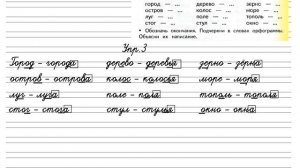 город — ... дерево — ... зерно — ...
остров — ... колос — ... море — ...
луг — ... поле — ... тополь — ...
стог — ... стул — ... окно — ...
• Обозначь окончания. Подчеркни в словах орфограммы.
Объясни их написание.
Упр. 3
Город – города дерево – деревья зерно – зёрна
остров – острова колос – колосья море – моря
луг – луга поле – поля тополь – тополя
стог – стога стул – стулья окно – окна